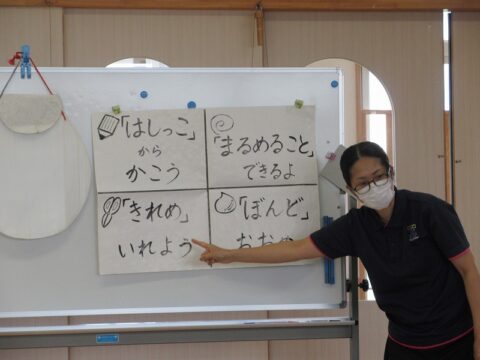 「はしっこ」
から
かこう
「まるめること」
できるよ
「きれめ」
いれよう
「ぼんど」